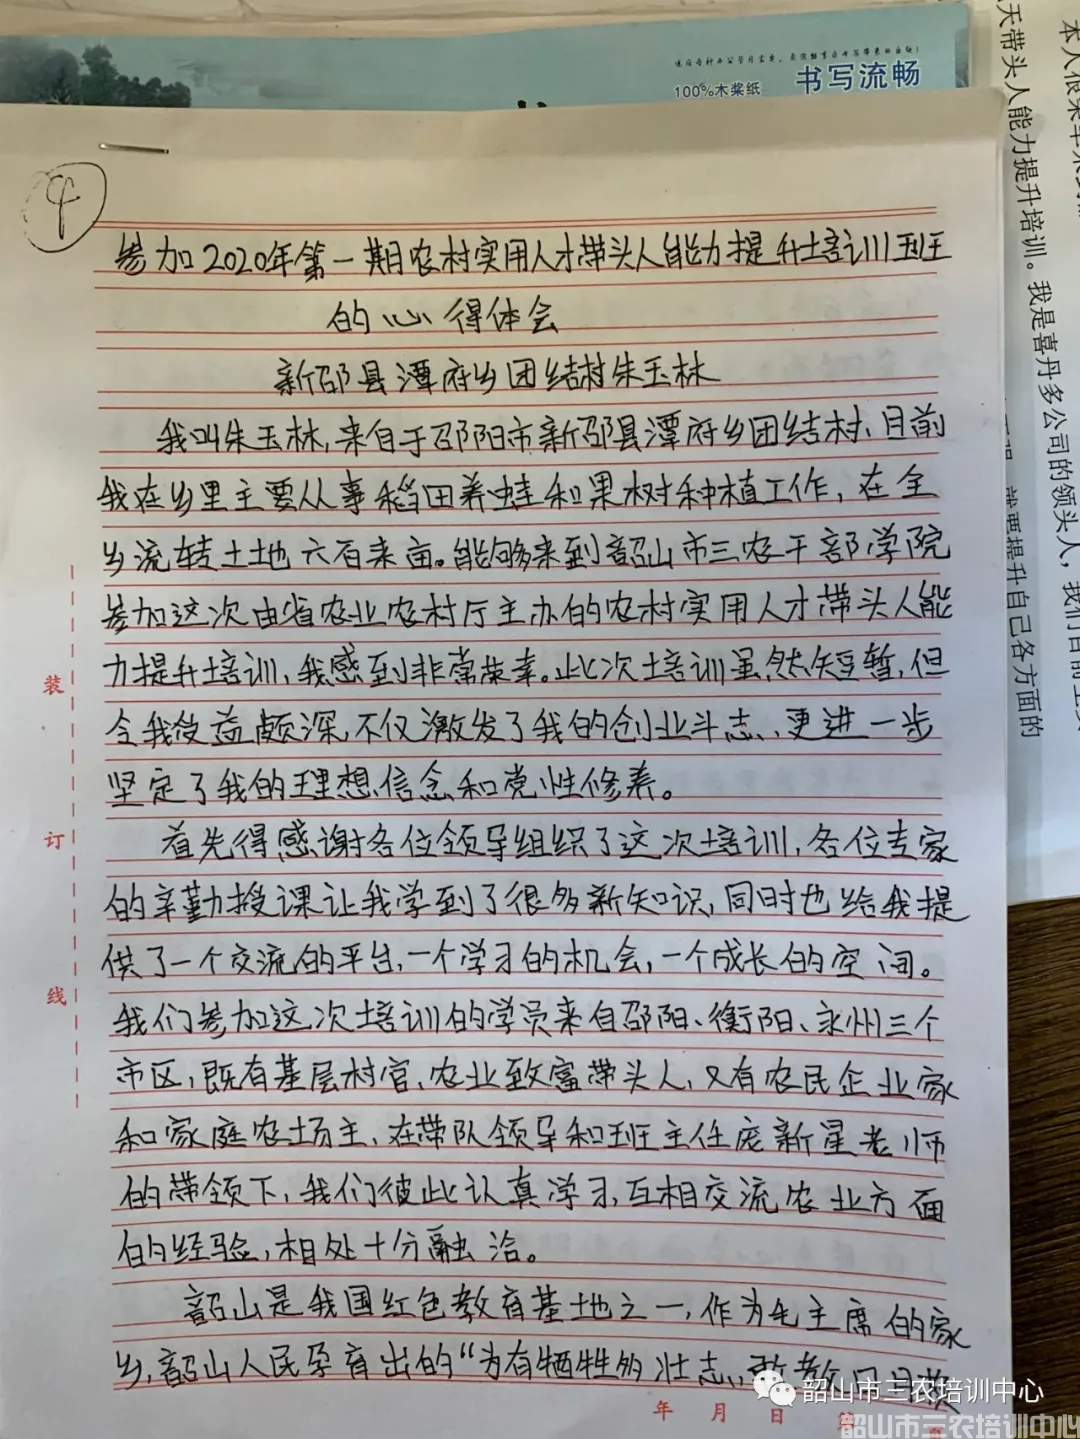 100%木桨纸
书写流畅
4
参加2020年第一期农村实用人才带头人能力提升培训班
的心得体会
新邵县潭府乡团结村朱玉林
我叫朱玉林,来自于邵阳市新邵县潭府乡团结村、目前
我在乡里主要从事稻田养蛙和果树种植工作,在全
乡流转土地六百来亩。能够来到韶山市三农干部学院
参加这次由省农业农村厅主办的农村实用人才带头人能
力提升培训,我感到非常荣幸。此次培训虽然短暂,但
令我受益颇深,不仅激发了我的创业斗志、更进一步
坚定了我的理想信念和党性修养。
首先得感谢各位领导组织了这次培训,各位专家
的辛勤授课让我学到了很多新知识,同时也给我提
供了一个交流的平台,一个学习的机会,一个成长的空间。
我们参加这次培训的学员来自邵阳、衡阳、永州三个
市区,既有基层村官、农业致富带头人,又有农民企业家
和家庭农场主、在带队领导和班主任庞新星老师
的带领下,我们彼此认真学习,互相交流农业方面
的经验,相处十分融洽。
韶山是我国红色教育基地之一,作为毛主席的家
乡,韶山人民孕育出的“为有牺牲多壮志,敢教日月换
装
订
线
年 月 日 第
天带头人能力提升培训。我是喜丹多公司的领头人,我们目前主
就要提升自己各方面的
韶山市三农培训中心
韶山市三农培训中心